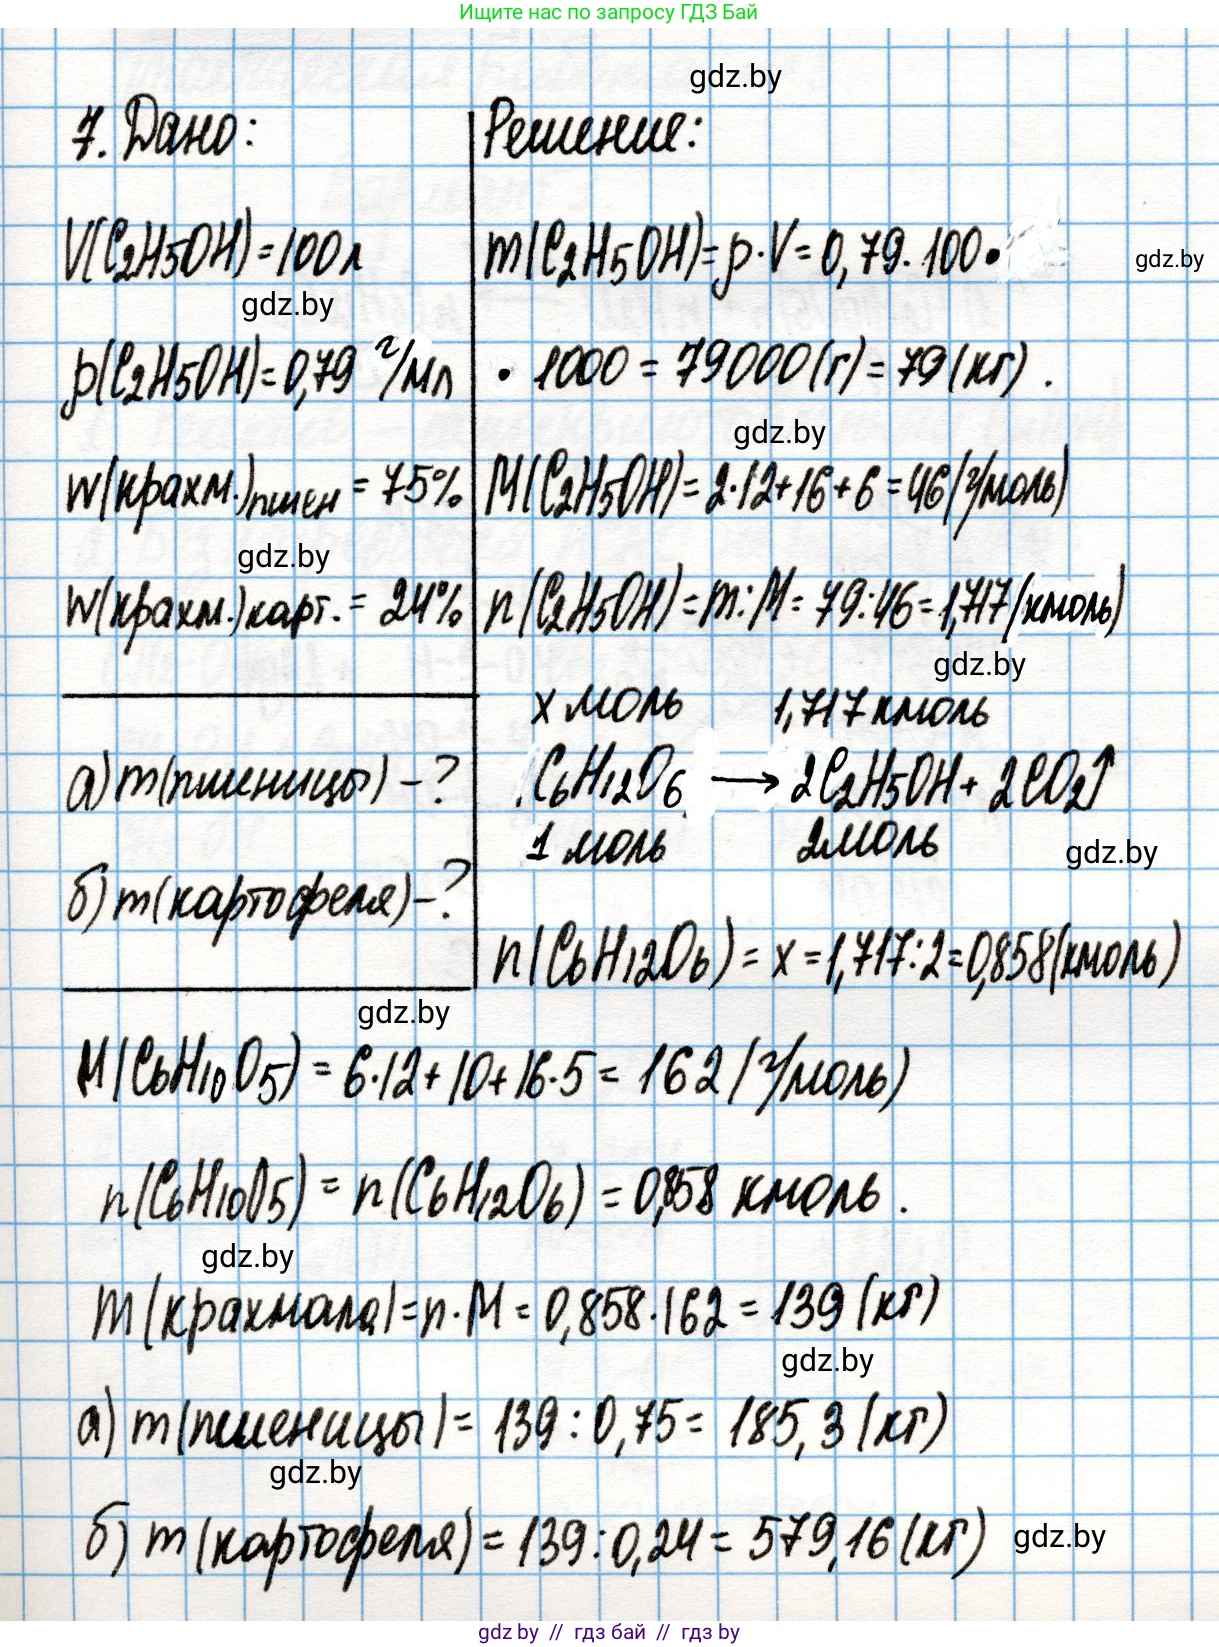 Ищите нас по запросу ГДЗ Бай
gdz.by
7. Дано:
V(C₂H₅OH) = 100 л
gdz.by
ρ(C₂H₅OH) = 0,79 г/мл
w(крахм.)пшен = 75%
gdz.by
w(крахм.)карт. = 24%
а) m(пшеницы) - ?
б) m(картофеля) - ?
Решение:
m(C₂H₅OH) = ρ · V = 0,79 · 100 ·
gdz.by
· 1000 = 79000 (г) = 79 (кг).
gdz.by
M(C₂H₅OH) = 2·12+16+6 = 46 (г/моль)
n(C₂H₅OH) = m : M = 79:46 = 1,717 (кмоль)
gdz.by
x моль 1,717 кмоль
C₆H₁₂O₆ ⟶ 2C₂H₅OH + 2CO₂↑
1 моль 2 моль
gdz.by
n(C₆H₁₂O₆) = x = 1,717 : 2 = 0,858 (кмоль)
gdz.by
M(C₆H₁₀O₅) = 6·12 + 10 + 16·5 = 162 (г/моль)
n(C₆H₁₀O₅) = n(C₆H₁₂O₆) = 0,858 кмоль.
gdz.by
m(крахмала) = n · M = 0,858 · 162 = 139 (кг)
gdz.by
а) m(пшеницы) = 139 : 0,75 = 185,3 (кг)
gdz.by
б) m(картофеля) = 139 : 0,24 = 579,16 (кг)
gdz.by
gdz.by // гдз бай // gdz.by